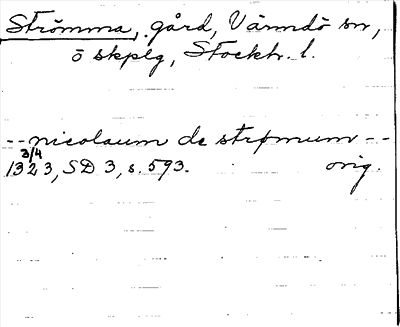 Strömma, gård, Värmdö sn,
ö skplg, Stockh. l.
-- nicolaum de strømum --
3/4
1323, SD 3, s. 593. orig.